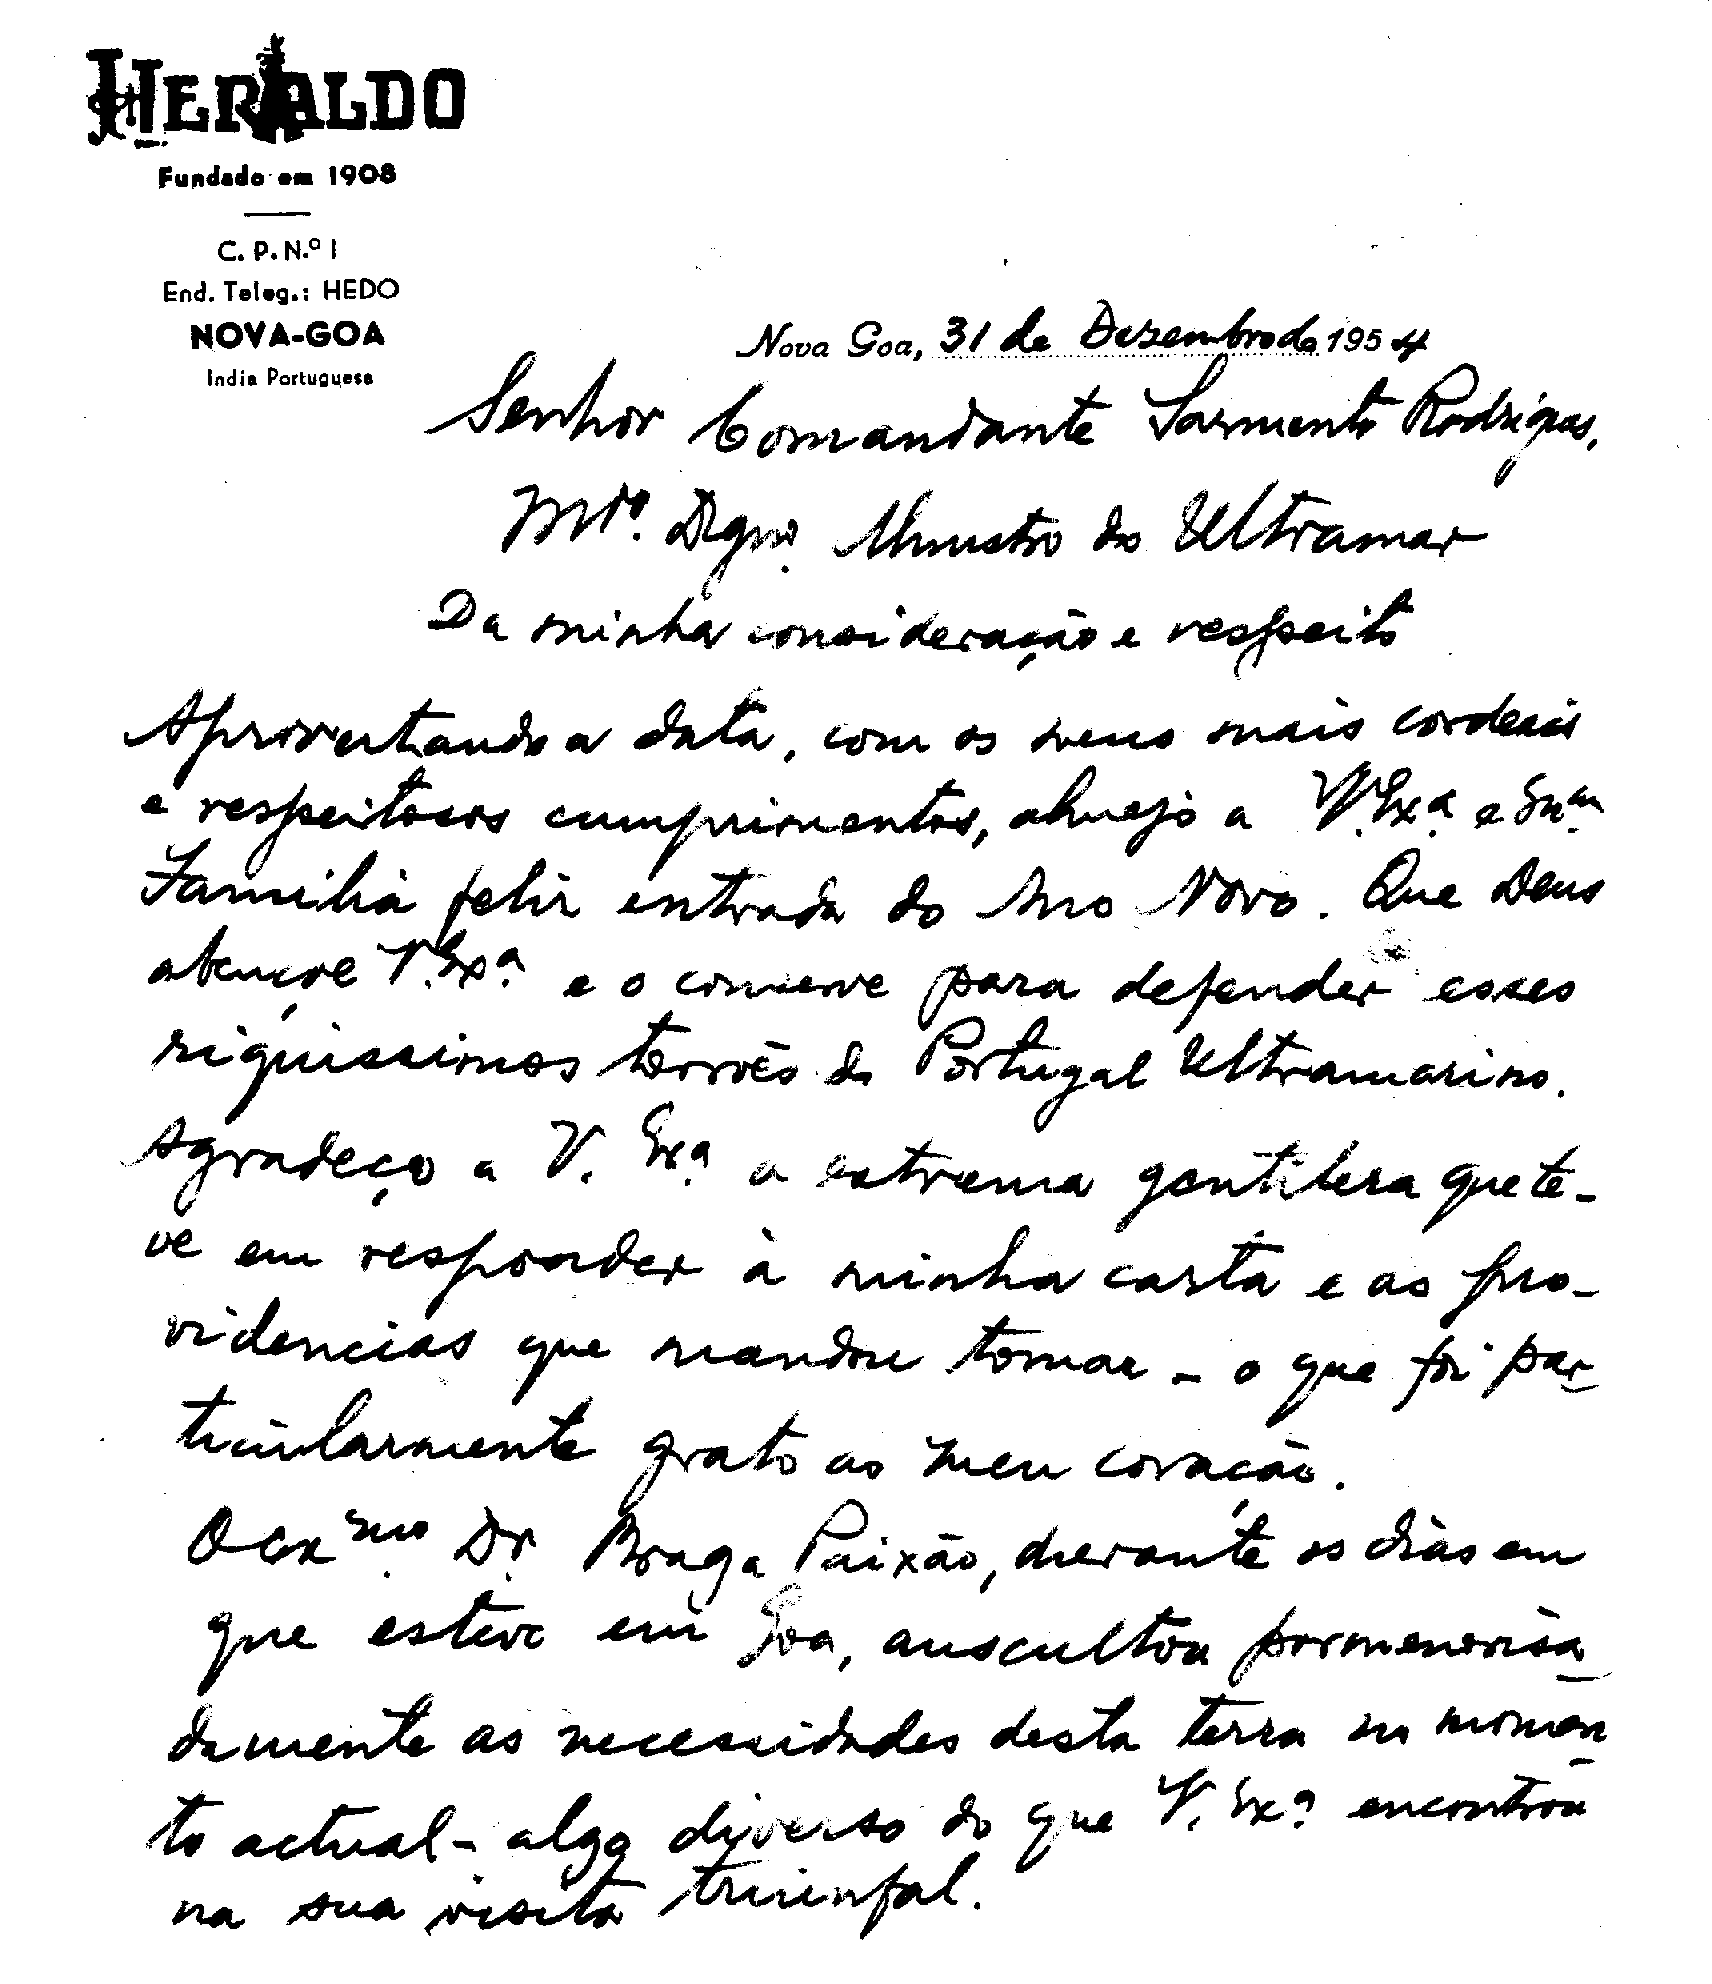 HERALDO
Fundado em 1908
C. P. N.º 1
End. Teleg.: HEDO
NOVA-GOA
India Portuguesa
Nova Goa, 31 de Dezembro de 1954
Senhor Comandante Sarmento Rodrigues,
Mto. Dgno. Ministro do Ultramar
Da minha consideração e respeito
Aproveitando a data, com os meus mais cordeais
e respeitosos cumprimentos, almejo a V. Exª. e Sua
Familia feliz entrada do Ano Novo. Que Deus
abençoe V. Exª. e o conserve para defender esses
riquissimos torrões do Portugal Ultramarino.
Agradeço a V. Exª. a extrema gentileza que te-
ve em responder à minha carta e as pro-
videncias que mandou tomar - o que foi par-
ticularmente grato ao meu coração.
O Exmo. Dr. Braga Paixão, durante os dias em
que esteve em Goa, auscultou pormenorisa-
damente as necessidades desta terra no momen-
to actual - algo diverso do que V. Exª. encontrou
na sua visita triunfal.